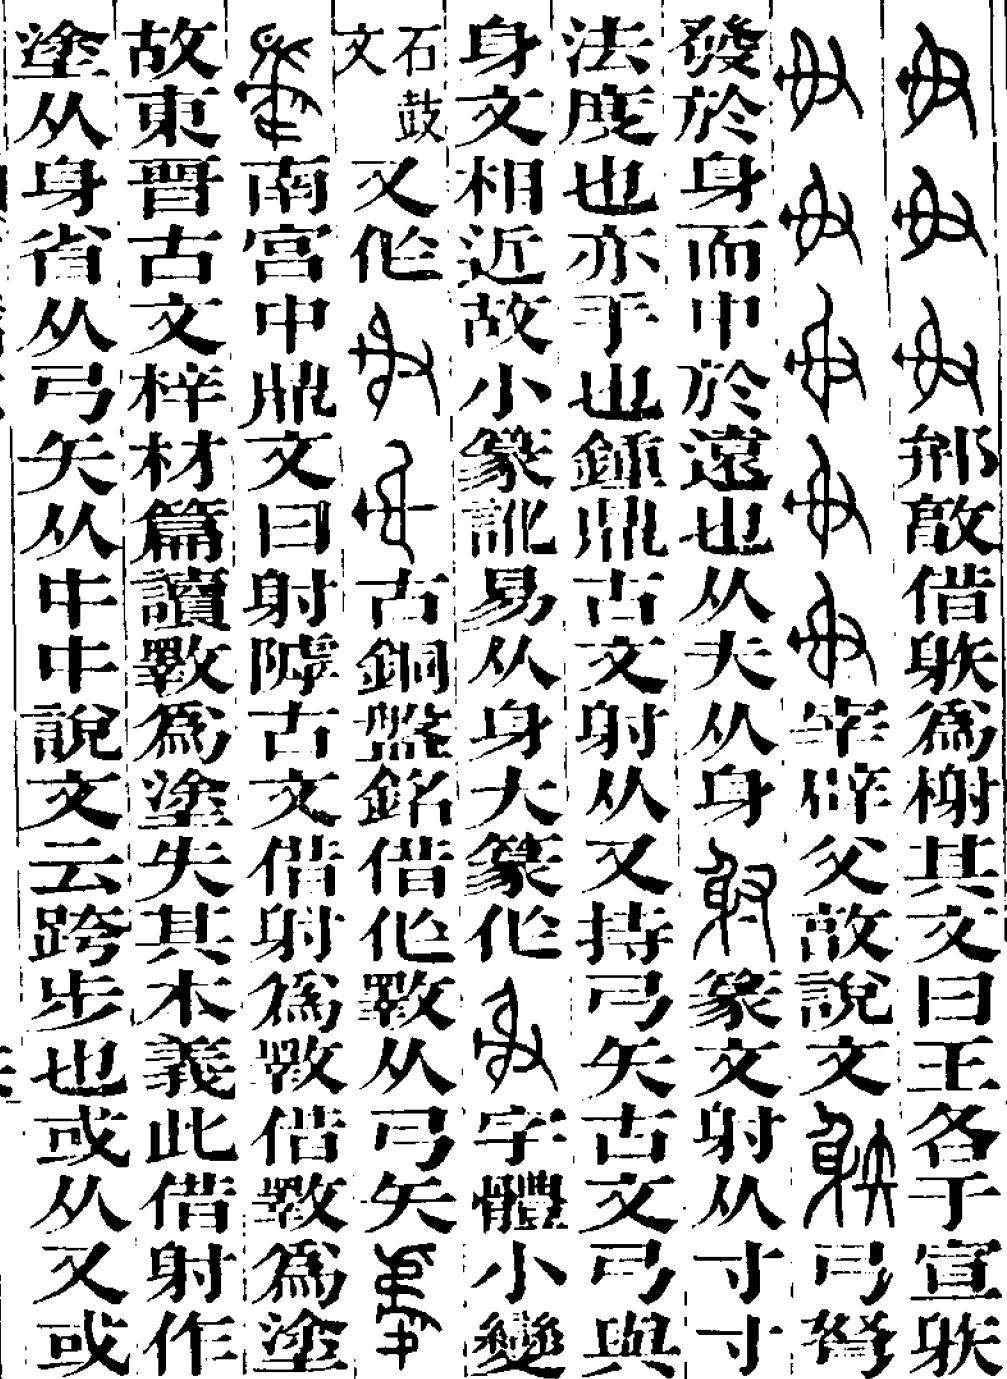 邢敔借躲為榭其文曰王各于宣躲
宰辟父敔說文弓弩
發於身而中於遠也从夫从身篆文射从寸寸
法度也亦手也鍾鼎古文射从又持弓矢古文弓與
身文相近故小篆訛易从身大篆作字體小變
石鼓文又作古銅盤銘借作斁从弓矢
南宮中鼎文曰射陟古文借射為斁借斁為塗
故東晉古文梓材篇讀斁為塗失其本義此借射作
塗从身省从弓矢从中中說文云跨步也或从又或